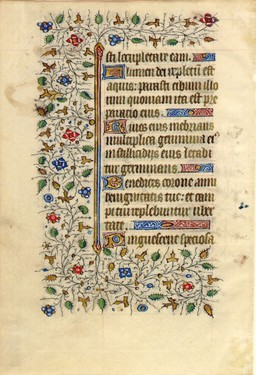 sti locupletare eam.
Flumen dei repletū est
aquis: parasti cibum illo
rum quoniam ita est pre
paratio eius.
Riuos eius inebrians
multiplica genimina ei
in stillicidijs eius letabi
tur germinans.
Benedices corone anni
benignitatis tue: et cam
pi tui replebuntur vber
tate.
Pinguescent speciosa